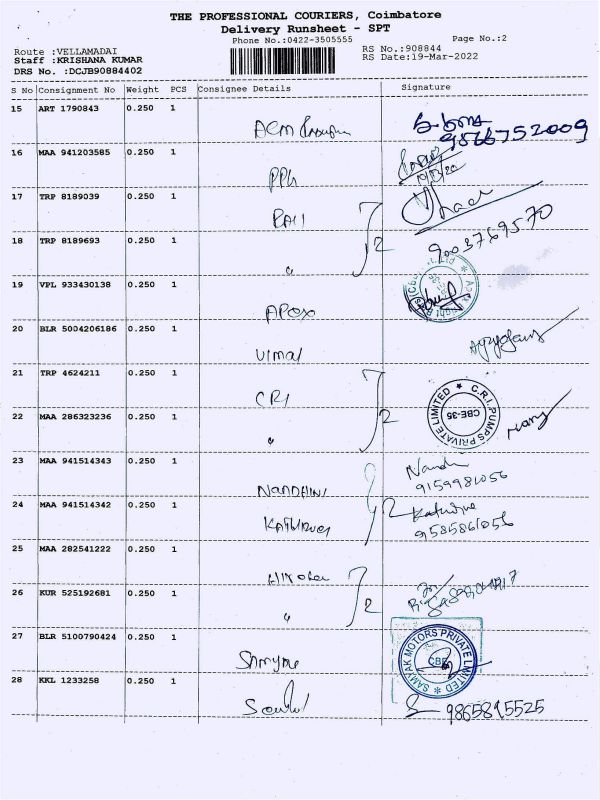 THE PROFESSIONAL COURIERS, Coimbatore
Delivery Runsheet - SPT
Phone No.:0422-3505555
Page No.:2
Route :VELLAMADAI
RS No.:908844
Staff :KRISHANA KUMAR
RS Date:19-Mar-2022
DRS No. :DCJB90884402
S No Consignment No Weight PCS Consignee Details Signature
15 ART 1790843 0.250 1
9566752009
16 MAA 941203585 0.250 1
PPh
17 TRP 8189039 0.250 1
18 TRP 8189693 0.250 1
" 2
9003769570
19 VPL 933430138 0.250 1
Apex
20 BLR 5004206186 0.250 1
Vimal
21 TRP 4624211 0.250 1
CRI
C.R.I. PUMPS PRIVATE LIMITED
CBE-35
22 MAA 286323236 0.250 1
" 2
23 MAA 941514343 0.250 1
NANDHINI
9159981056
24 MAA 941514342 0.250 1
2
9585861056
25 MAA 282541222 0.250 1
26 KUR 525192681 0.250 1
" 2
27 BLR 5100790424 0.250 1
SAMYAK MOTORS PRIVATE LIMITED
CBE
28 KKL 1233258 0.250 1
9865895525